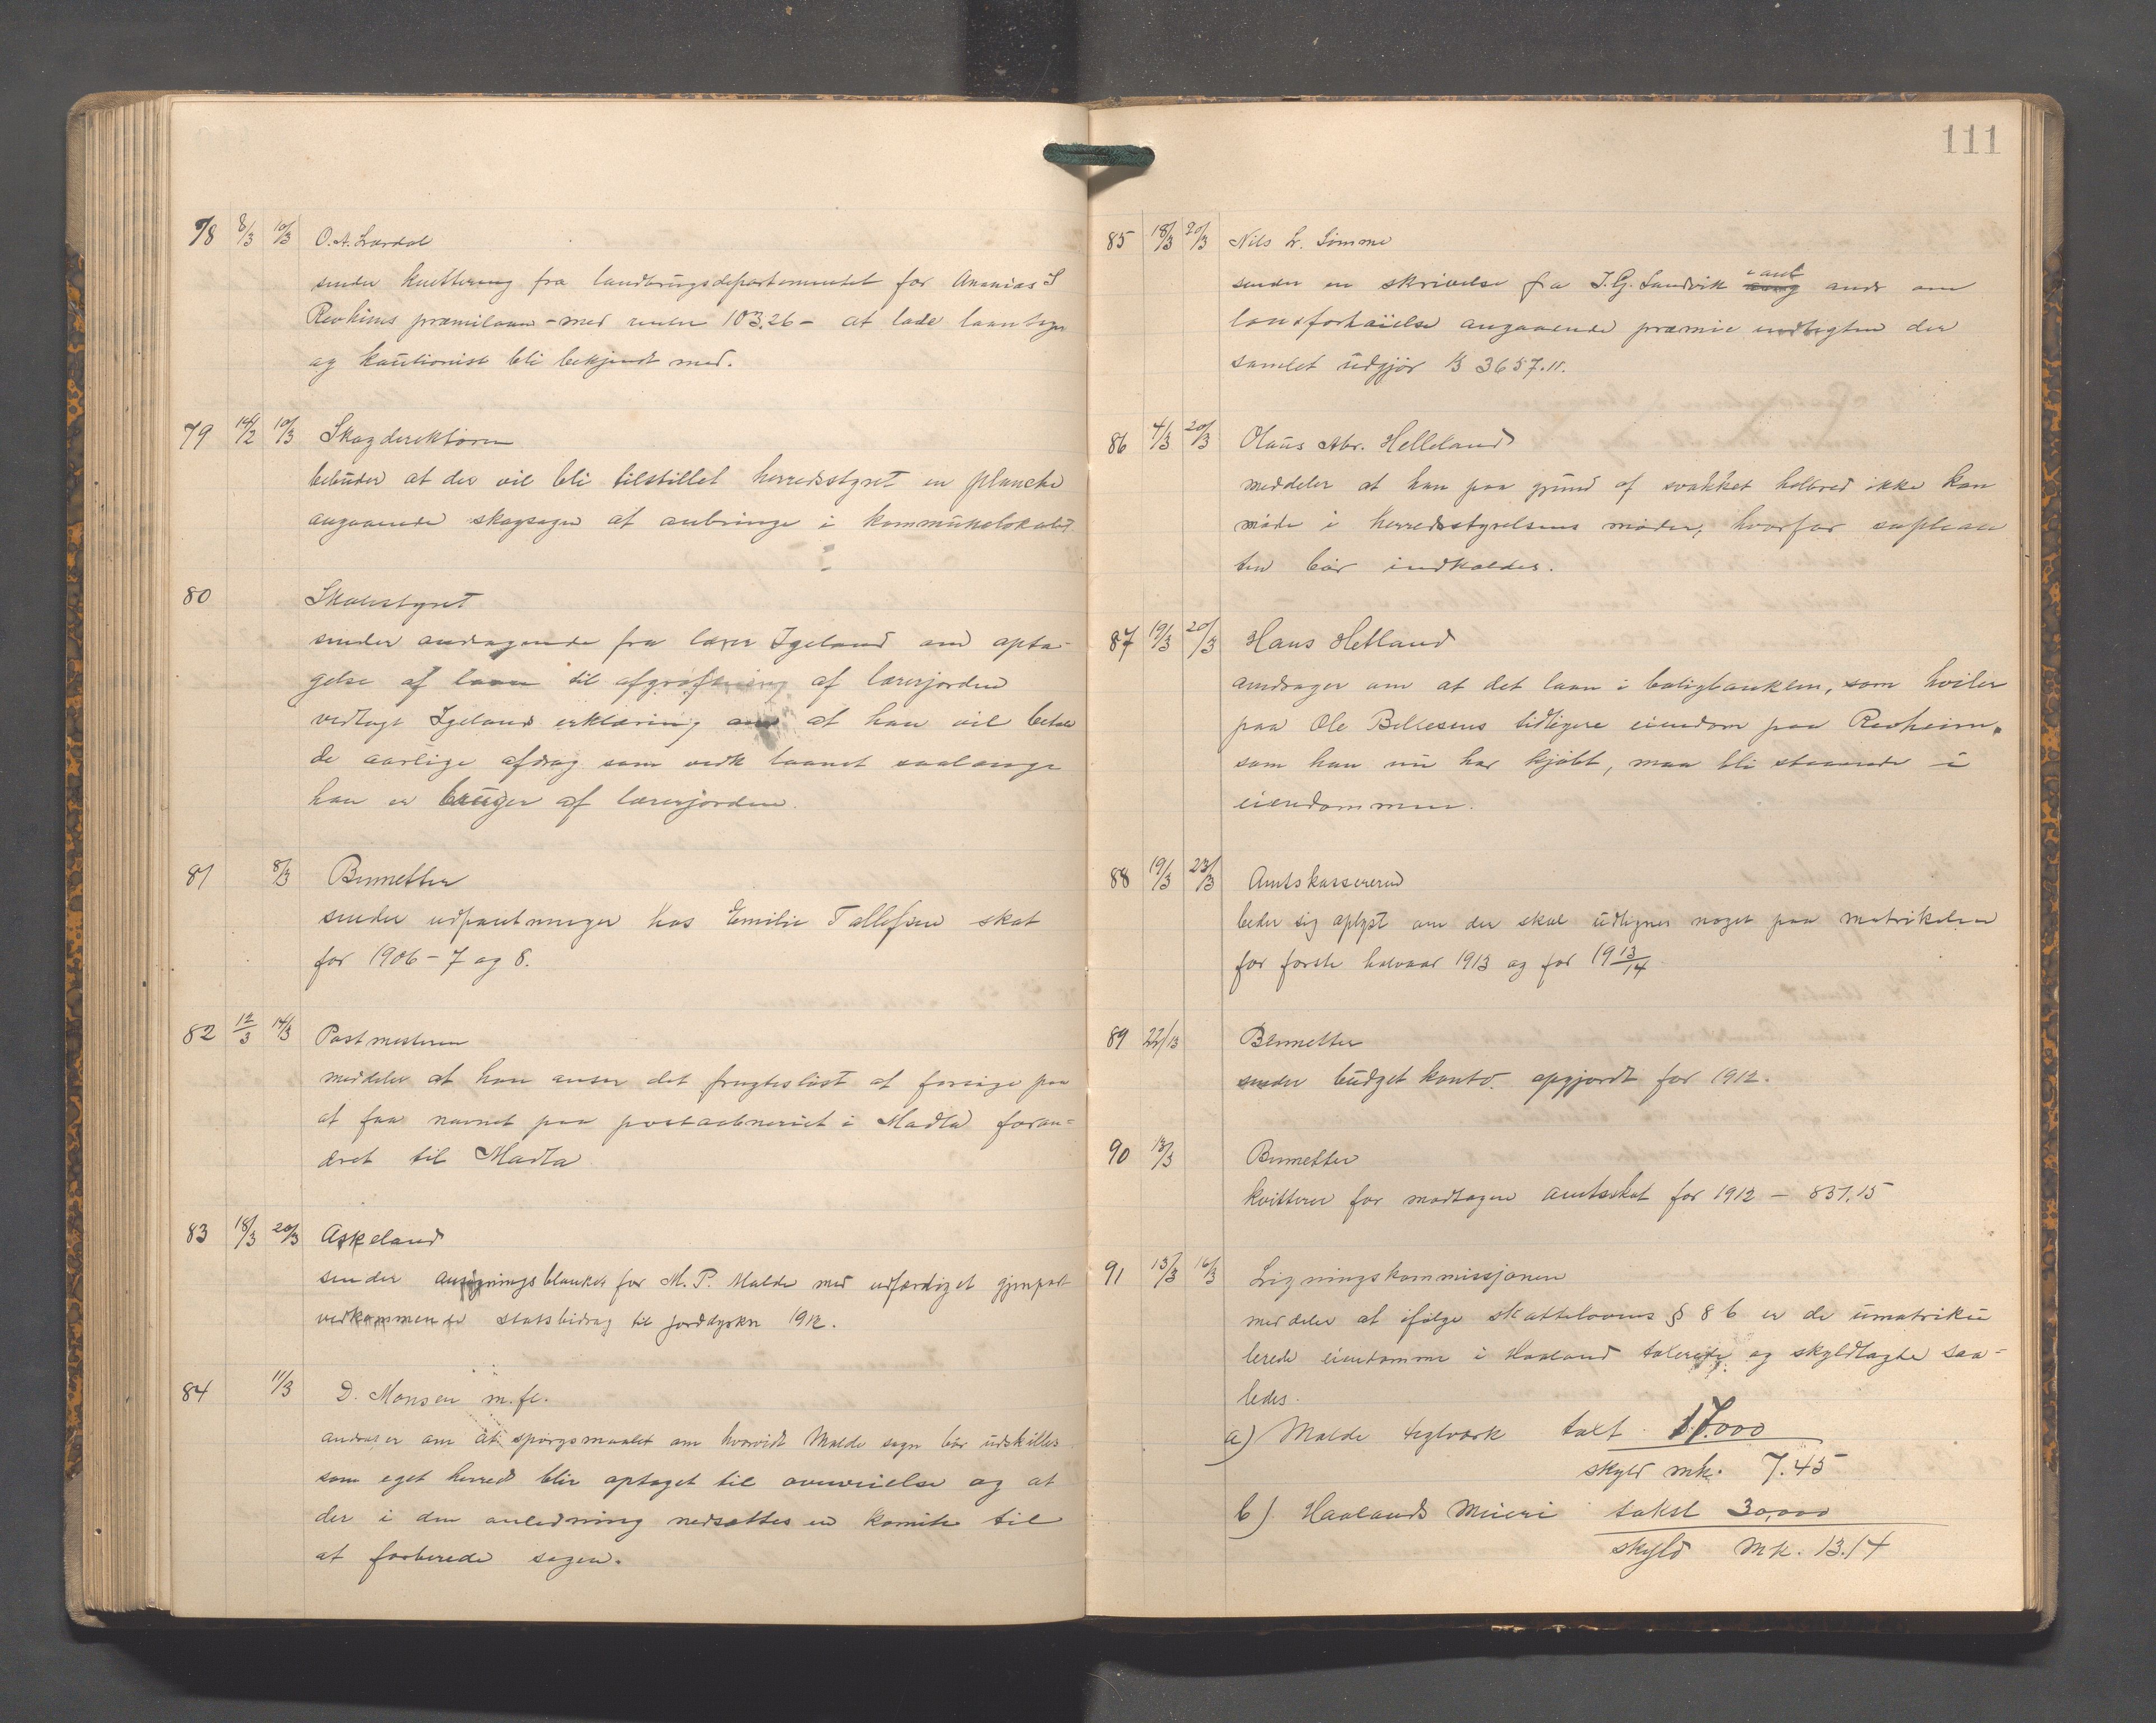 78 8/3 10/3 O. A. Lærdal
sender kvittering fra landbrugsdepartementet for Ananias S
Revheims præmilaan – med renter 103.26 – at lade laantager
og kautionist bli bekjendt med.
79 14/2 10/3 Skogdirektøren
bebuder at der vil bli tilstillet herredsstyret en planche
angaaende skogsagen at anbringe i kommunelokalet.
80 Skolestyret
sender andragende fra lærer Igeland om opta-
gelse af laan til afgrøftning af lærerjorden
vedlagt Igelands erklæring om at han vil betale
de aarlige afdrag som vedk laanet saalænge
han er bruger af lærerjorden.
81 8/3 Bumetter
sender udpantninger hos Emilie Tallefsen skat
for 1906 – 7 og 8.
82 12/3 14/3 Postmesteren
meddeler at han anser det frugtesløst at forsøge paa
at faa navnet paa postaabneriet i Madla foran-
dret til Madla
83 18/3 20/3 Askeland
sender anvisningsblanket for M. P. Malde med udfærdiget gjenpart
vedkommende statsbidrag til jorddyrkn 1912.
84 11/3 D. Monsen m. fl.
andrager om at spørgsmaalet om hvorvidt Malde sogn bør udskilles
som eget herred blir optaget til overveielse og at
der i den anledning nedsættes en komite til
at forberede sagen.
111
85 18/3 20/3 Nils L. Sømme
sender en skrivelse fra I. G. Sandvik andr om
lønsforhøielse angaaende præmie indtægten der
samlet udgjør Kr 3657.11.
86 4/3 20/3 Olaus Abr. Helleland
meddeler at han paa grund af svækket helbred ikke kan
møde i herredsstyrelsens møder, hvorfor suplean
ten bør indkaldes.
87 19/3 20/3 Hans Hetland
andrager om at det laan i boligbanken, som hviler
paa Ole Bellesens tidligere eiendom paa Revheim,
som han nu har kjøbt, maa bli staaende i
eiendommen.
88 19/3 23/3 Amtskassereren
beder sig oplyst om der skal udlignes noget paa matrikelen
for første halvaar 1913 og for 1913/14
89 22/13 Bumetter
sender budget konto opgjordt for 1912.
90 13/3 Bumetter
kvitterer for modtagen amtsskat for 1912 – 831,15
91 13/3 16/3 Ligningskommissjonen
meddeler at ifølge skattelovens § 86 er de umatriku
lerede eiendomme i Haaland takserte og skyldlagte saa-
ledes.
a) Malde teglværk takt 17.000
skyld mk. 7.45
b) Haalands Meieri takst 30,000
skyld Mk. 13.14